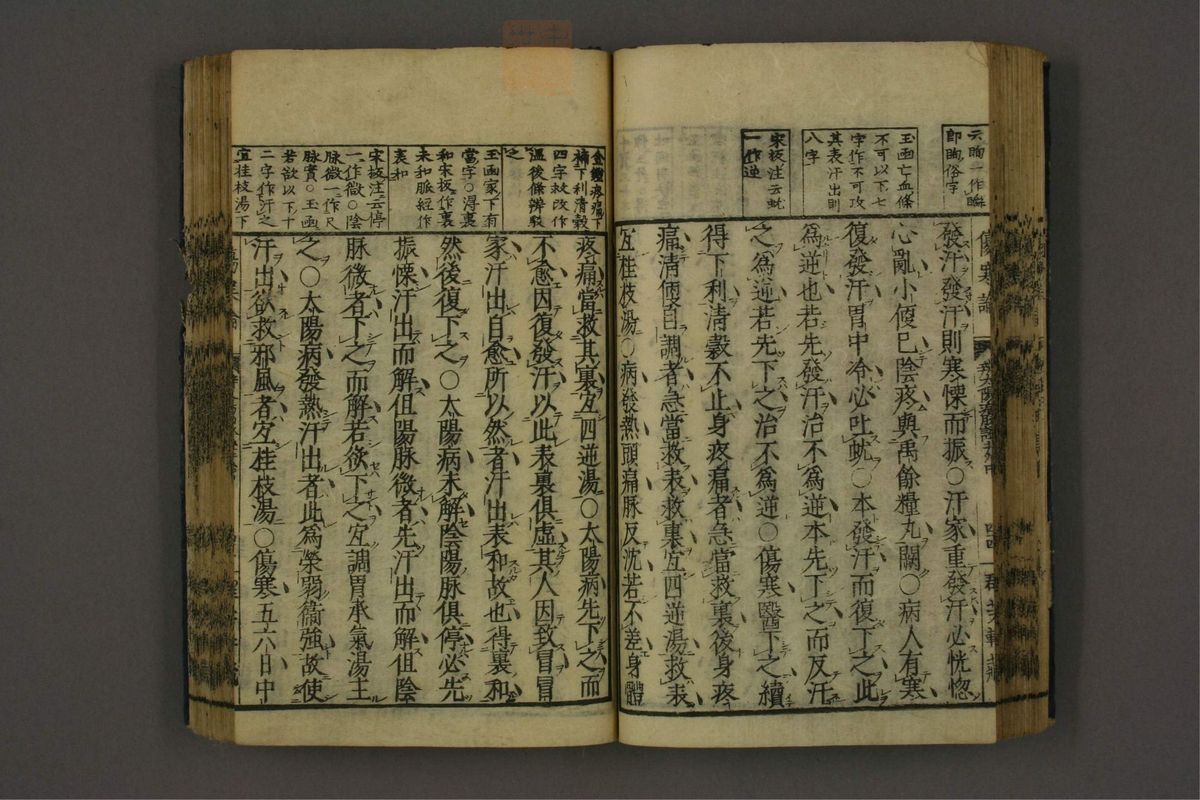 云眴一作瞬
即眴俗字
玉函亡血條
不可以下七
字作不可攻
其表汗出則
八字
宋板注云蚘
一作逆
傷寒論
發汗發汗則寒慄而振○汗家重發汗必恍惚
心亂小便已陰疼與禹餘糧丸闕○病人有寒
復發汗胃中冷必吐蚘○本發汗而復下之此
爲逆也若先發汗治不爲逆本先下之而反汗
之爲逆若先下之治不爲逆○傷寒醫下之續
得下利清穀不止身疼痛者急當救裏後身疼
痛清便自調者急當救表救裏宜四逆湯救表
宜桂枝湯○病發熱頭痛脉反沈若不差身體
金鑑疼痛下
補下利清穀
四字救改作
溫後條辨駁
之
玉函家下有
當字○得裏
和宋板作裏
未和脈經作
表和
宋板注云停
一作微○陰
脉微一作尺
脉實○玉函
若欲以下十
二字作汗之
宜桂枝湯下
疼痛當救其裏宜四逆湯○太陽病先下之而
不愈因復發汗以此表裏俱虛其人因致冒冒
家汗出自愈所以然者汗出表和故也得裏和
然後復下之○太陽病未解陰陽脉俱停必先
振慄汗出而解但陽脉微者先汗出而解但陰
脉微者下之而解若欲下之宜調胃承氣湯主
之○太陽病發熱汗出者此爲榮弱衞強故使
汗出欲救邪風者宜桂枝湯○傷寒五六日中